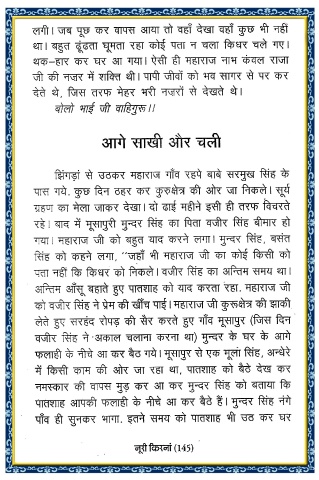 लगी। जब पूछ कर बापस आया तो वहाँ देखा वहाँ कुछ भी नहीं
था। बहुत ढूंढता घूमता रहा कोई पता न चला किधर चले गए।
थक-हार कर घर आ गया। ऐसी ही महाराज नाभ कंवल राजा
जी की नजर में शक्ति थी। पापी जीवों को भव सागर से पर कर
देते थे, जिस तरफ मेहर भरी नजरों से देखते थे।
बोलो भाई जी वाहिगुरू।।
आगे साखी और चली
झिंगड़ां से उठकर महाराज गाँव रहपे बाबे सरमुख सिंह के
पास गये. कुछ दिन ठहर कर कुरुक्षेत्र की ओर जा निकले। सूर्य
ग्रहण का मेला जाकर देखा। दो ढाई महीने इसी ही तरफ विचरते
रहे। बाद में मूसापुरी मुन्दर सिंह का पिता वजीर सिंह बीमार हो
गया। महाराज जी को बहुत याद करने लगा। मुन्दर सिंह, बसंत
सिंह को कहने लगा, ‘‘जहाँ भी महाराज जी का कोई किसी को
पता नहीं कि किधर को निकले। वजीर सिंह का अन्तिम समय था।
अन्तिम आँसू बहाते हुए पातशाह को याद करता रहा. महाराज जी
को वजीर सिंह ने प्रेम की खींच पाई। महाराज जी कुरूक्षेत्र की झाकी
लेते हुए सरहंद रोपड़ की सैर करते हुए गाँव मूसापुर (जिस दिन
वजीर सिंह ने अकाल चलाना करना था) मुन्दर के घर के आगे
फलाही के नीचे आ कर बैठ गये। मूसापुर से एक मूलां सिंह, अन्धेरे
में किसी काम की ओर जा रहा था, पातशाह को बैठे देख कर
नमस्कार की वापस मुड़ कर आ कर मुन्दर सिंह को बताया कि
पातशाह आपकी फलाही के नीचे आ कर बैठे हैं। मुन्दर सिंह नंगे
पाँव ही सुनकर भागा. इतने समय को पातशाह भी उठ कर घर
नूरी किरनां (145)